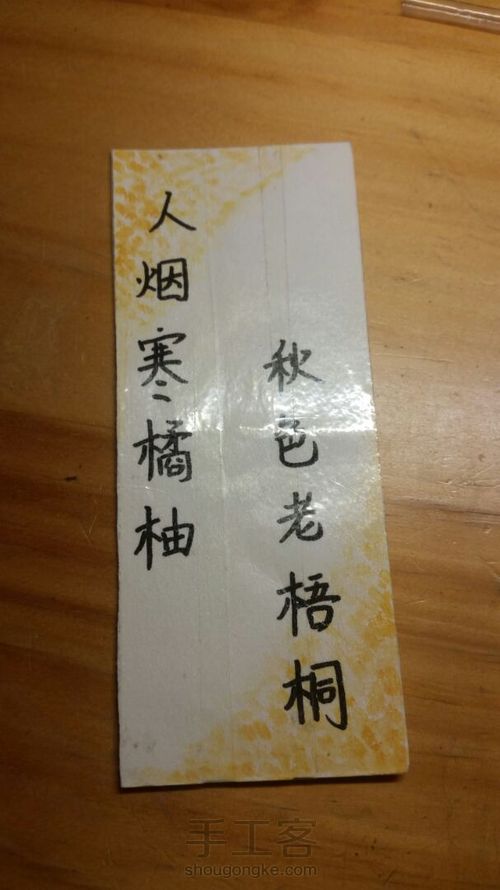 人烟寒橘柚
秋色老梧桐
手工客
shougongke.com